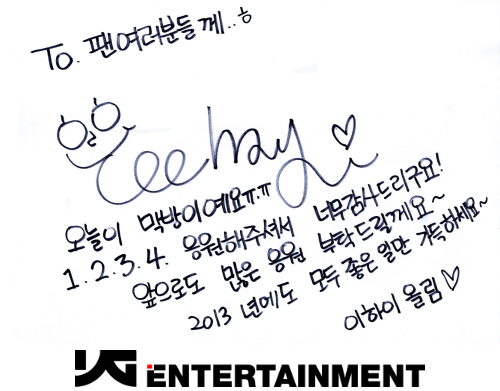 To. 팬여러분들께..ㅎ
Lee hayi
오늘이 막방이예요ㅠ.ㅠ
1.2.3.4. 응원해주셔서 너무감사드리구요!
앞으로도 많은 응원 부탁드릴게요~
2013 년에도 모두 좋은 일만 가득하세요~
이하이 올림♡
YG ENTERTAINMENT